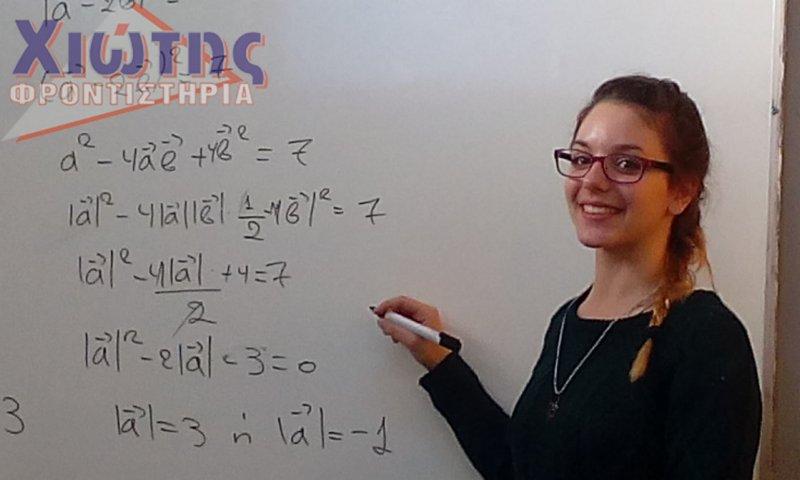 |a⃗ - 2β⃗| =
ΧΙΩΤΗΣ
ΦΡΟΝΤΙΣΤΗΡΙΑ
)² = 7
a² - 4a⃗β⃗ + 4β⃗² = 7
|a⃗|² - 4|a⃗||β⃗| · 1/2 + 4|β⃗|² = 7
|a⃗|² - 4|a⃗|/2 + 4 = 7
|a⃗|² - 2|a⃗| - 3 = 0
3
|a⃗| = 3 ή |a⃗| = -1